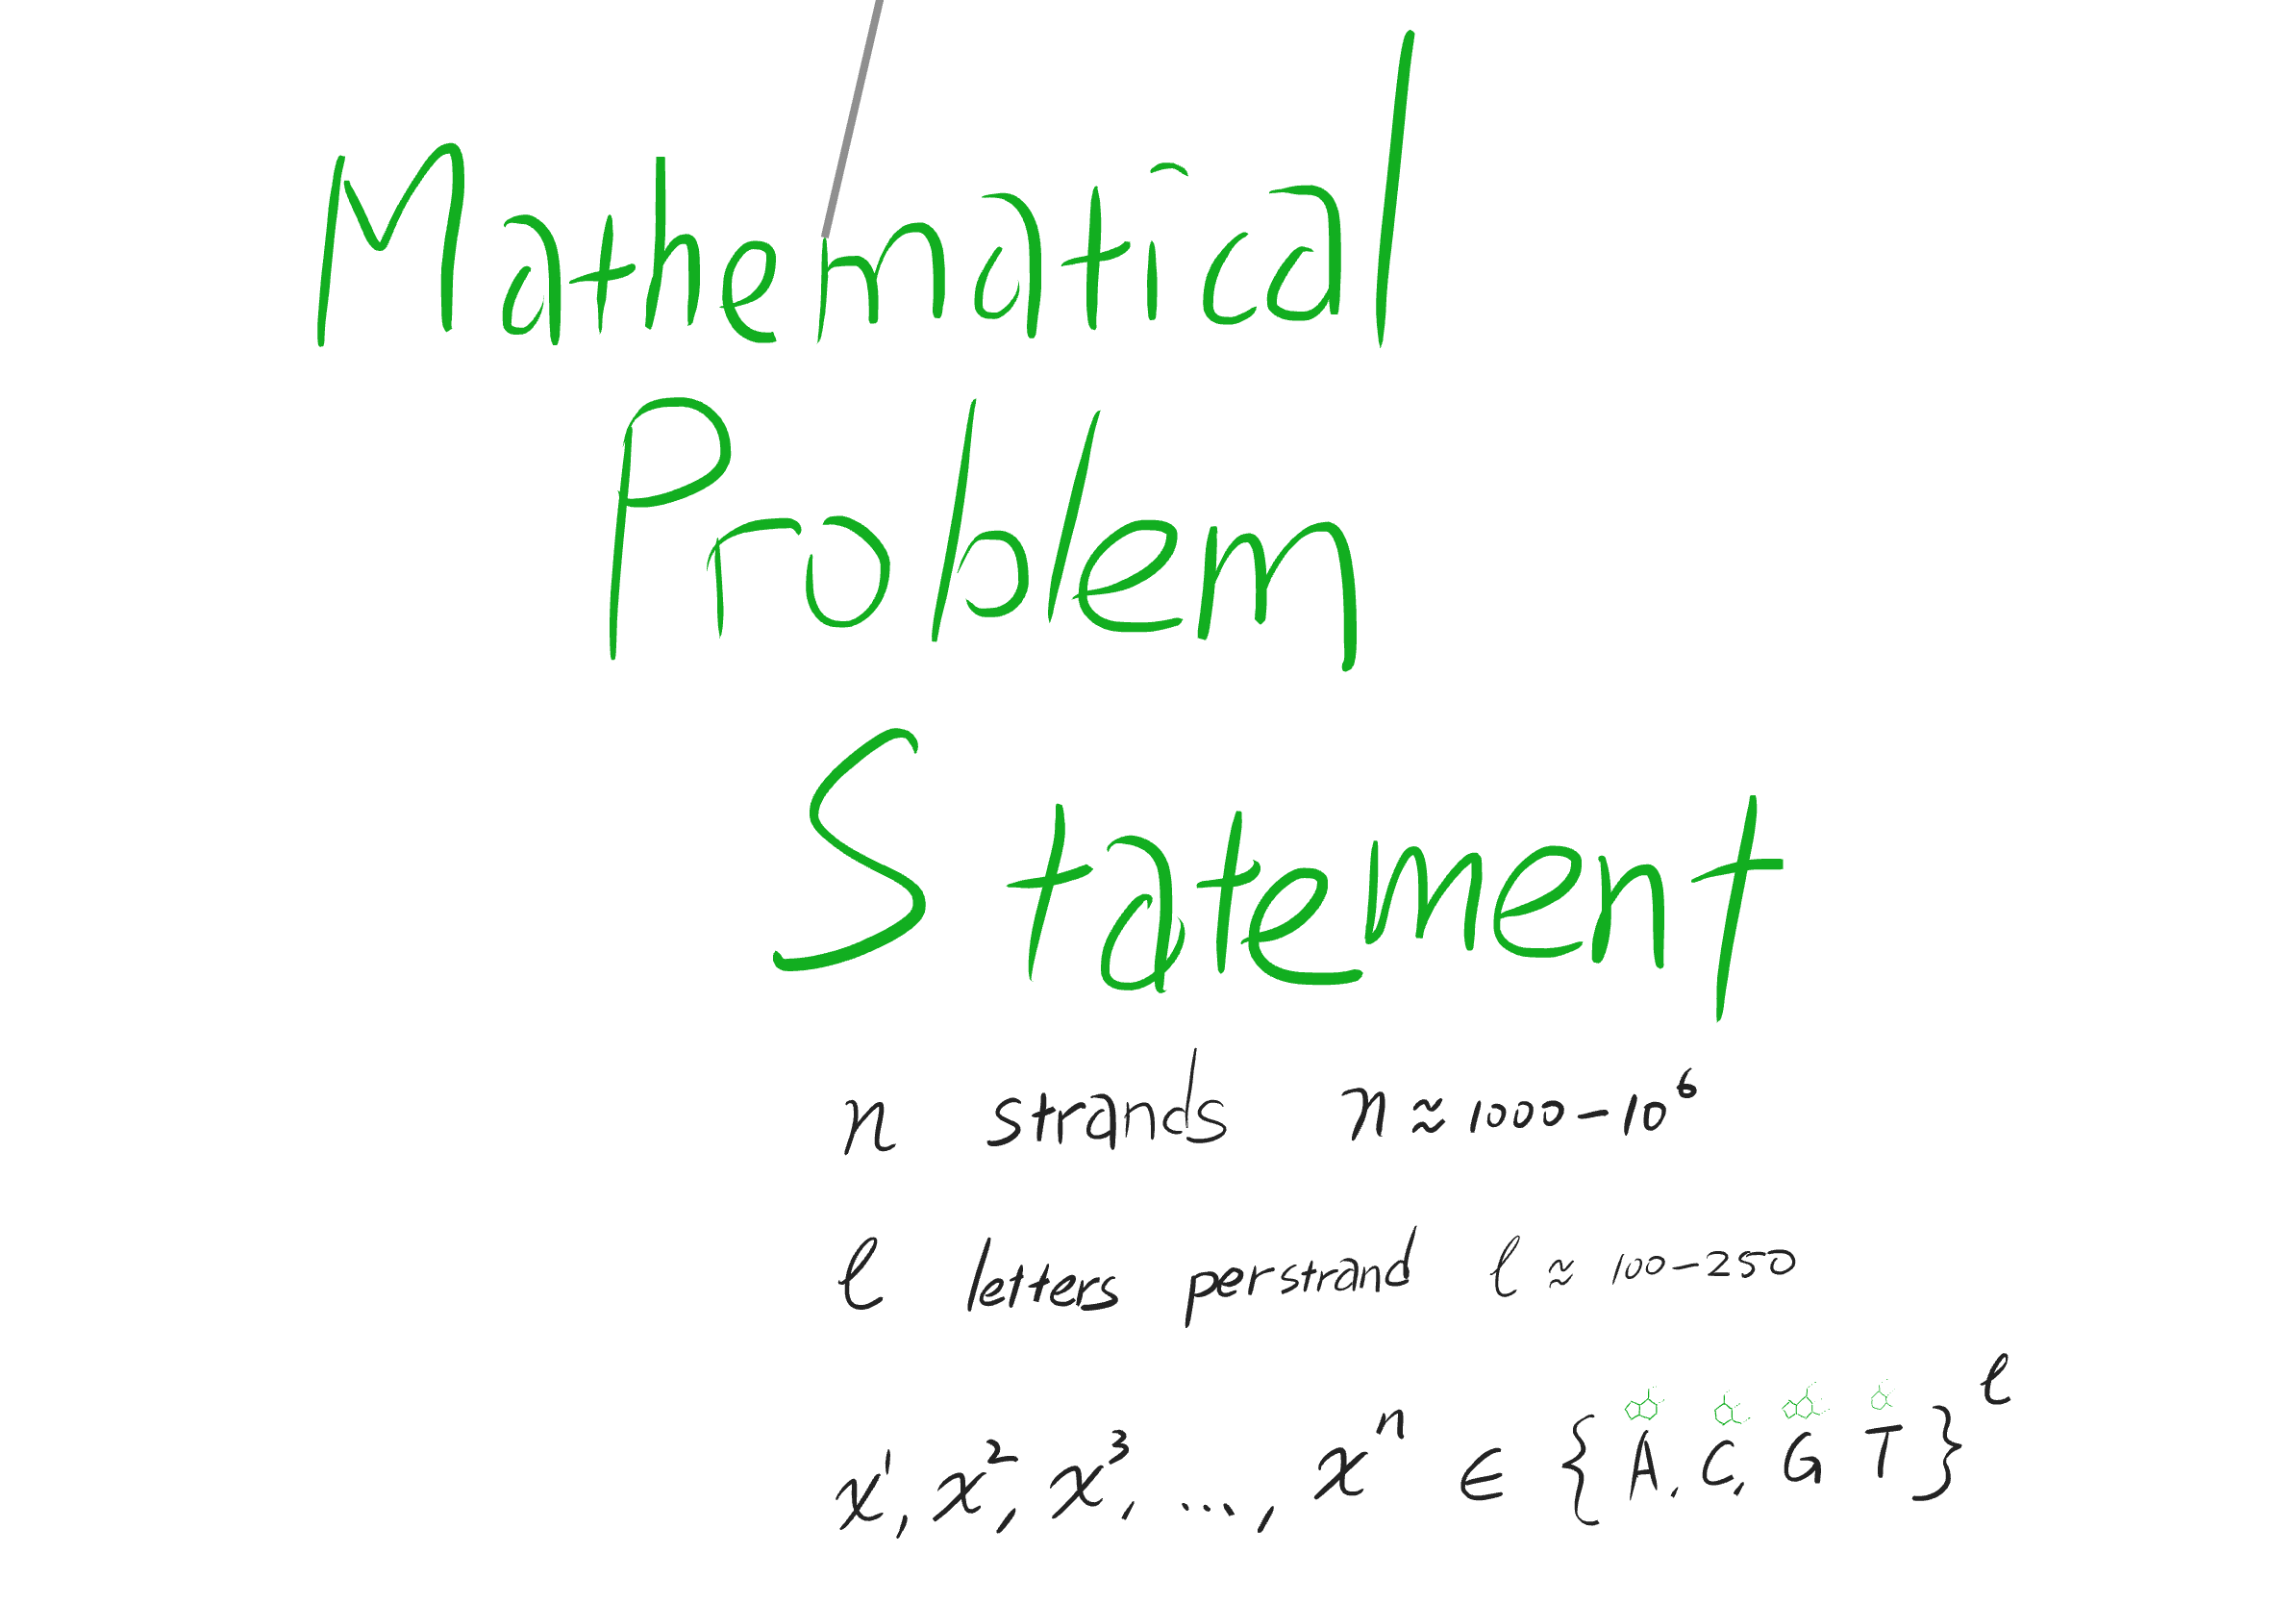 Mathematical
Problem
Statement
n strands n ≈ 1000-10⁶
ℓ letters per strand ℓ ≈ 100-250
x¹, x², x³, ..., xⁿ ∈ {A, C, G T}ˡ